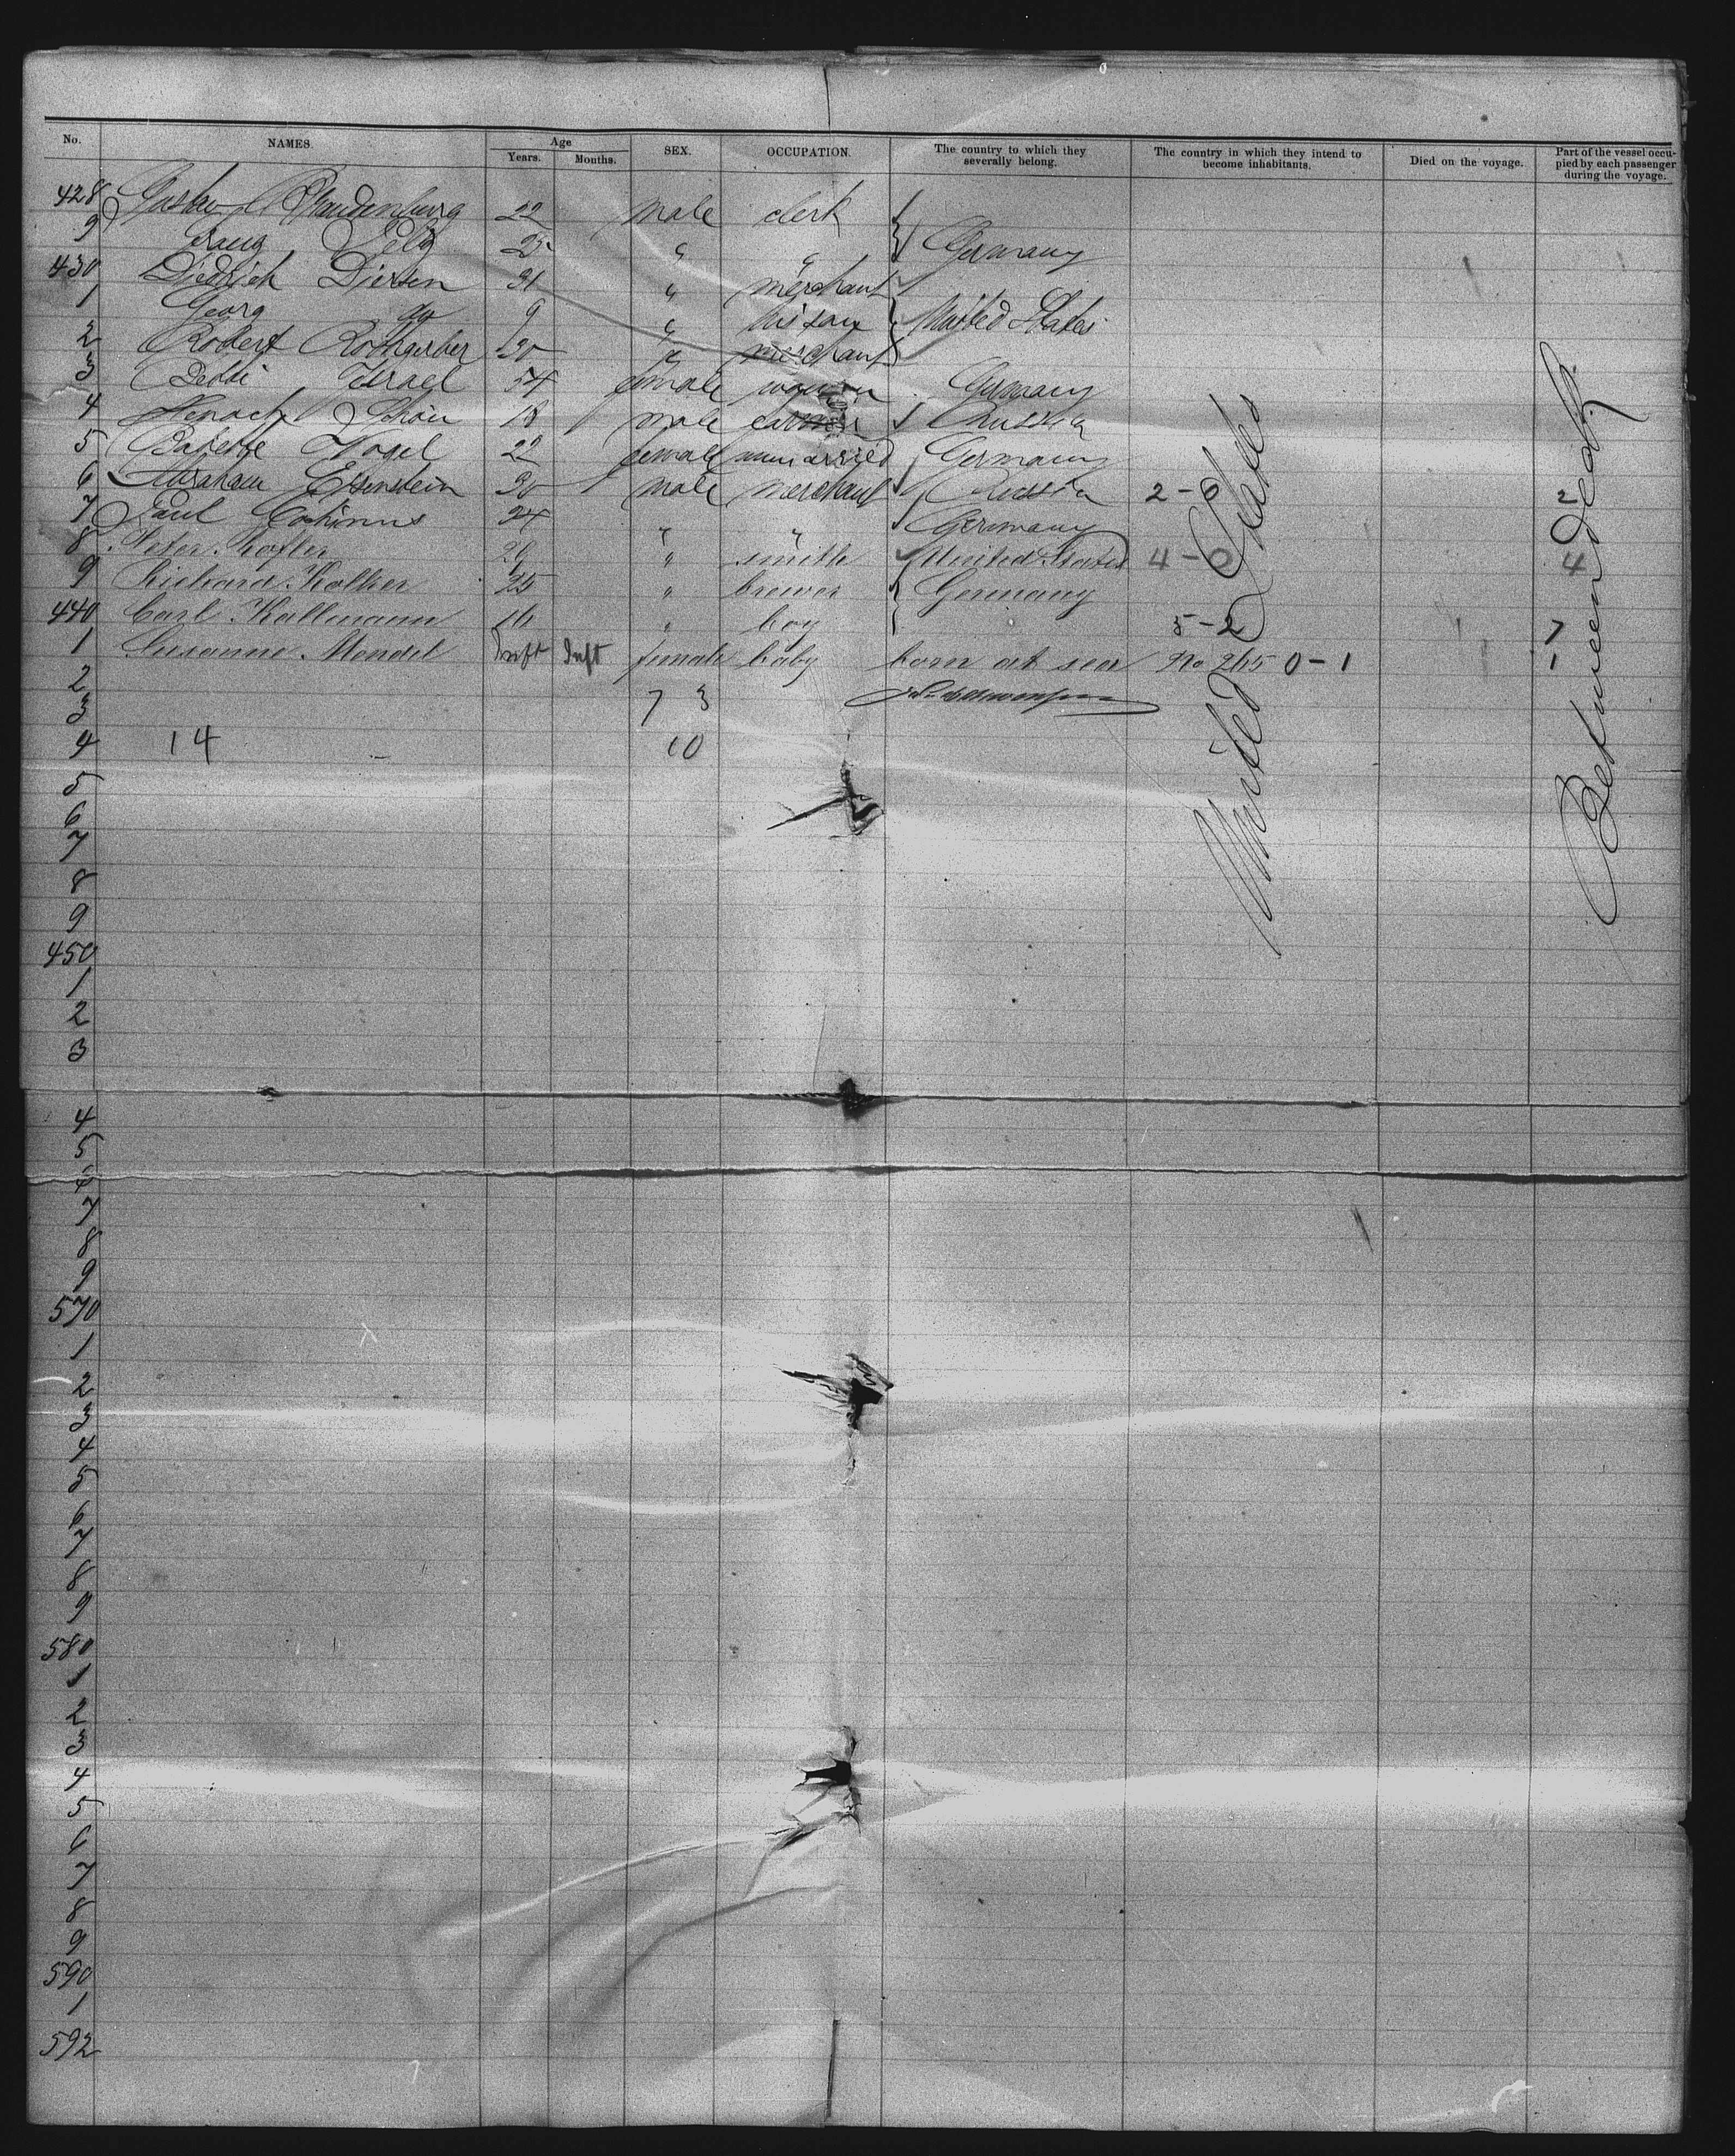 No. NAMES. Age Years. Months. SEX. OCCUPATION. The country to which they severally belong. The country in which they intend to become inhabitants. Died on the voyage. Part of the vessel occupied by each passenger during the voyage.
428 Gustav Brandenburg 22 male clerk
9 25 " " Germany
430 Diedrich Diersen 31 " merchant
1 Georg do 9 " his son United States
2 Robert 30 " merchant
3 Israel 54 female woman Germany
4 18 male Russia
5 Babette Vogel 22 female unmarried Germany
6 Abraham Eisenstein 30 male merchant Russia 2-6 2
7 Paul 24 " " Germany
8 Peter Kofler " smith United States 4-0 4
9 Richard 25 " brewer Germany
440 Carl Kallmann 16 " boy 5-2 7
1 Susanne Mendel Inft Inft female baby born at sea No 265 0-1 1
2
3 7 3
4 14 10
5
6
7
8
9
450
1
2
3
4
5
6
7
8
9
570
1
2
3
4
5
6
7
8
9
580
1
2
3
4
5
6
7
8
9
590
1
592
United States
Between decks